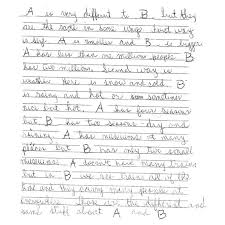 A is very different to B, but they
are the same in some ways first way
is size. A is smaller and B is bigger
A has more than one million people B
has two million. Second way is
weather. Here is snow and cold. B
is rainy and hot or sometimes
nice but hot. A has four season
but B has two seasons day and
shining. A has museums of many
places but B has only two small
museums. A doesn't have many trains
but in B we see trains all of the
and they carry many people in
everywhere these are the different and
same stuff about A and B